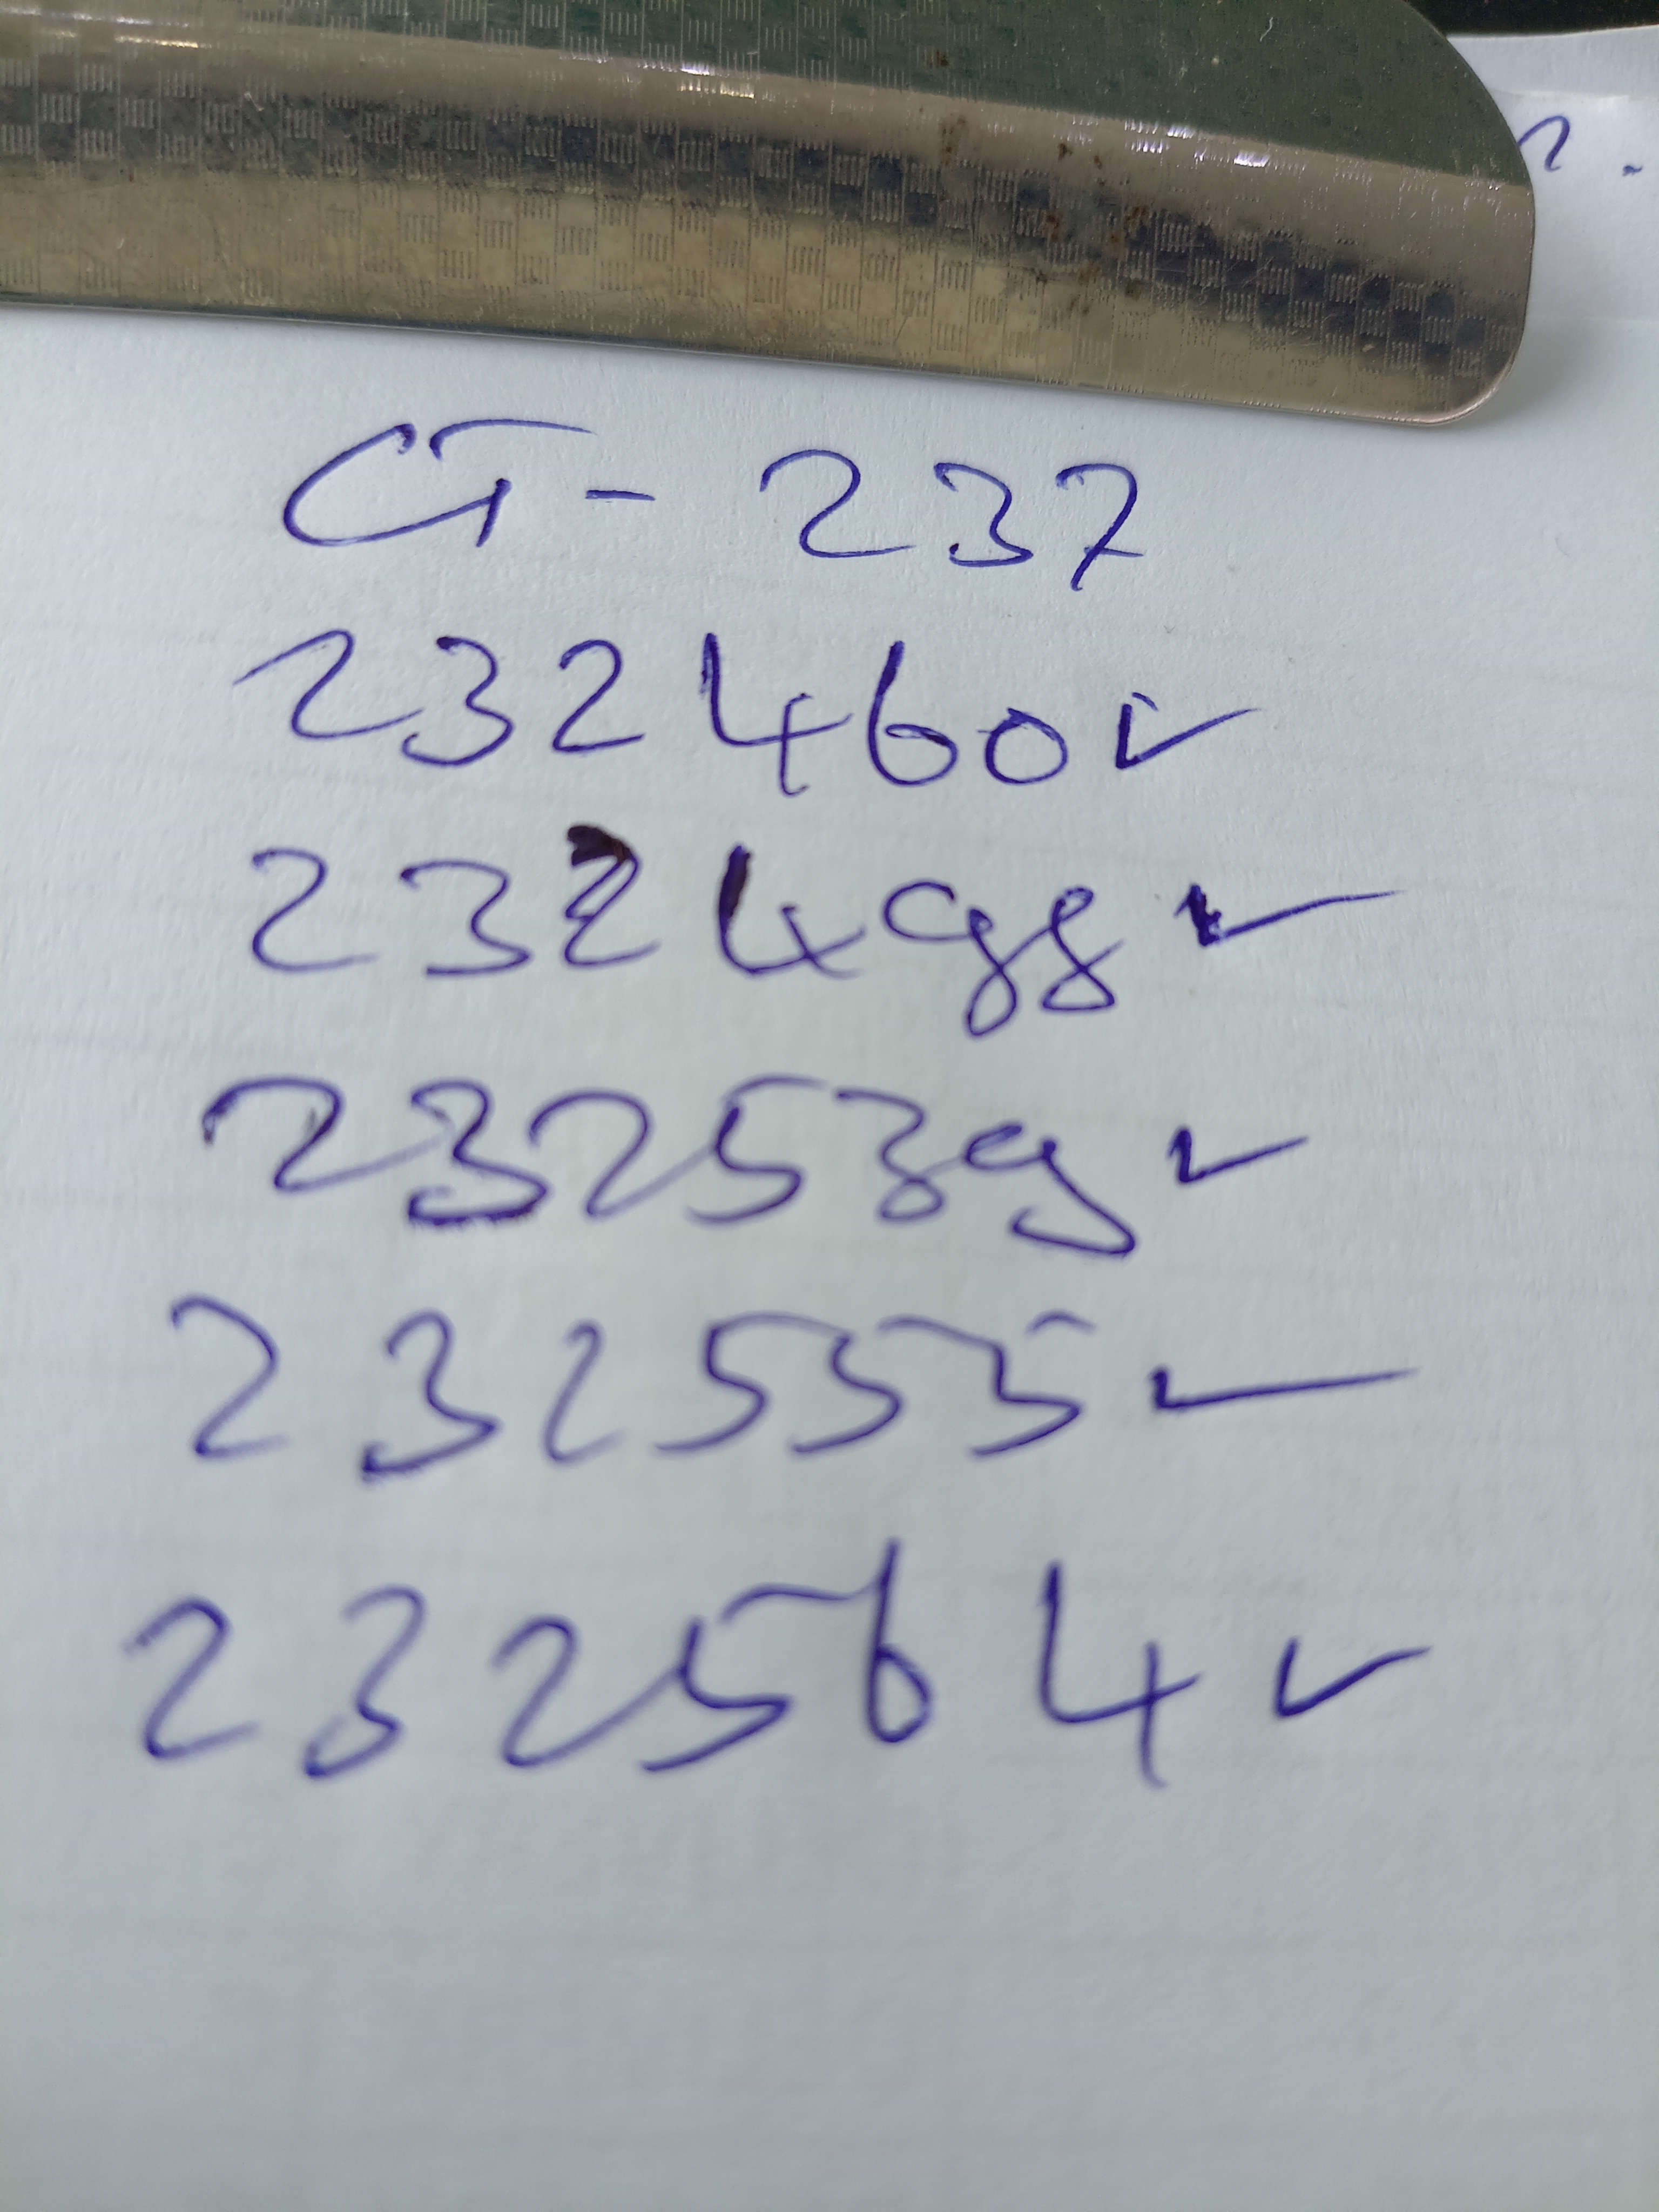 CT- 237
232460 ✓
232498 ✓
232539 ✓
232555 ✓
232564 ✓